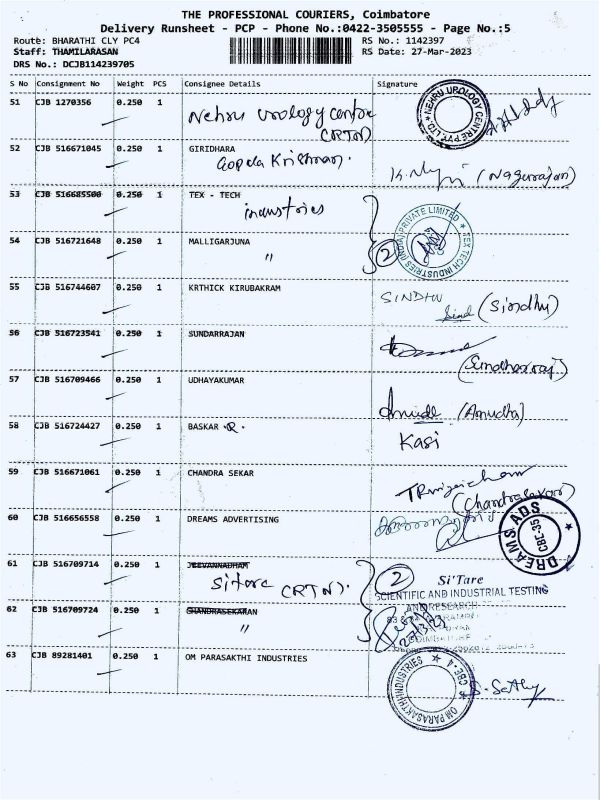 THE PROFESSIONAL COURIERS, Coimbatore
Delivery Runsheet - PCP - Phone No.:0422-3505555 - Page No.:5
Route: BHARATHI CLY PC4 RS No.: 1142397
Staff: THAMILARASAN RS Date: 27-Mar-2023
DRS No.: DCJB114239705
S No Consignment No Weight PCS Consignee Details Signature
51 CJB 1270356 0.250 1 Nehru Urology Centre
(RTN)
NEHRU UROLOGY CENTRE PVT. LTD.
52 CJB 516671045 0.250 1 GIRIDHARA
Gopala Krishnan.
(Nagurajan)
53 CJB 516685500 0.250 1 TEX - TECH
industries
TEX TECH INDUSTRIES (INDIA) PRIVATE LIMITED
54 CJB 516721648 0.250 1 MALLIGARJUNA
" 2
55 CJB 516744607 0.250 1 KRTHICK KIRUBAKRAM SINDHU
Sind (Sindhu)
56 CJB 516723541 0.250 1 SUNDARRAJAN
(Sundharraj)
57 CJB 516709466 0.250 1 UDHAYAKUMAR
(Anudha)
58 CJB 516724427 0.250 1 BASKAR .R. Kasi
59 CJB 516671061 0.250 1 CHANDRA SEKAR
60 CJB 516656558 0.250 1 DREAMS ADVERTISING
DREAMS ADS CBE-35
61 CJB 516709714 0.250 1 JEEVANNADHAM 2 Si'Tare
Sitare (RTN). SCIENTIFIC AND INDUSTRIAL TESTING
AND RESEARCH
62 CJB 516709724 0.250 1 CHANDRASEKARAN
"
63 CJB 89281401 0.250 1 OM PARASAKTHI INDUSTRIES
OM PARASAKTHI INDUSTRIES CBE-4